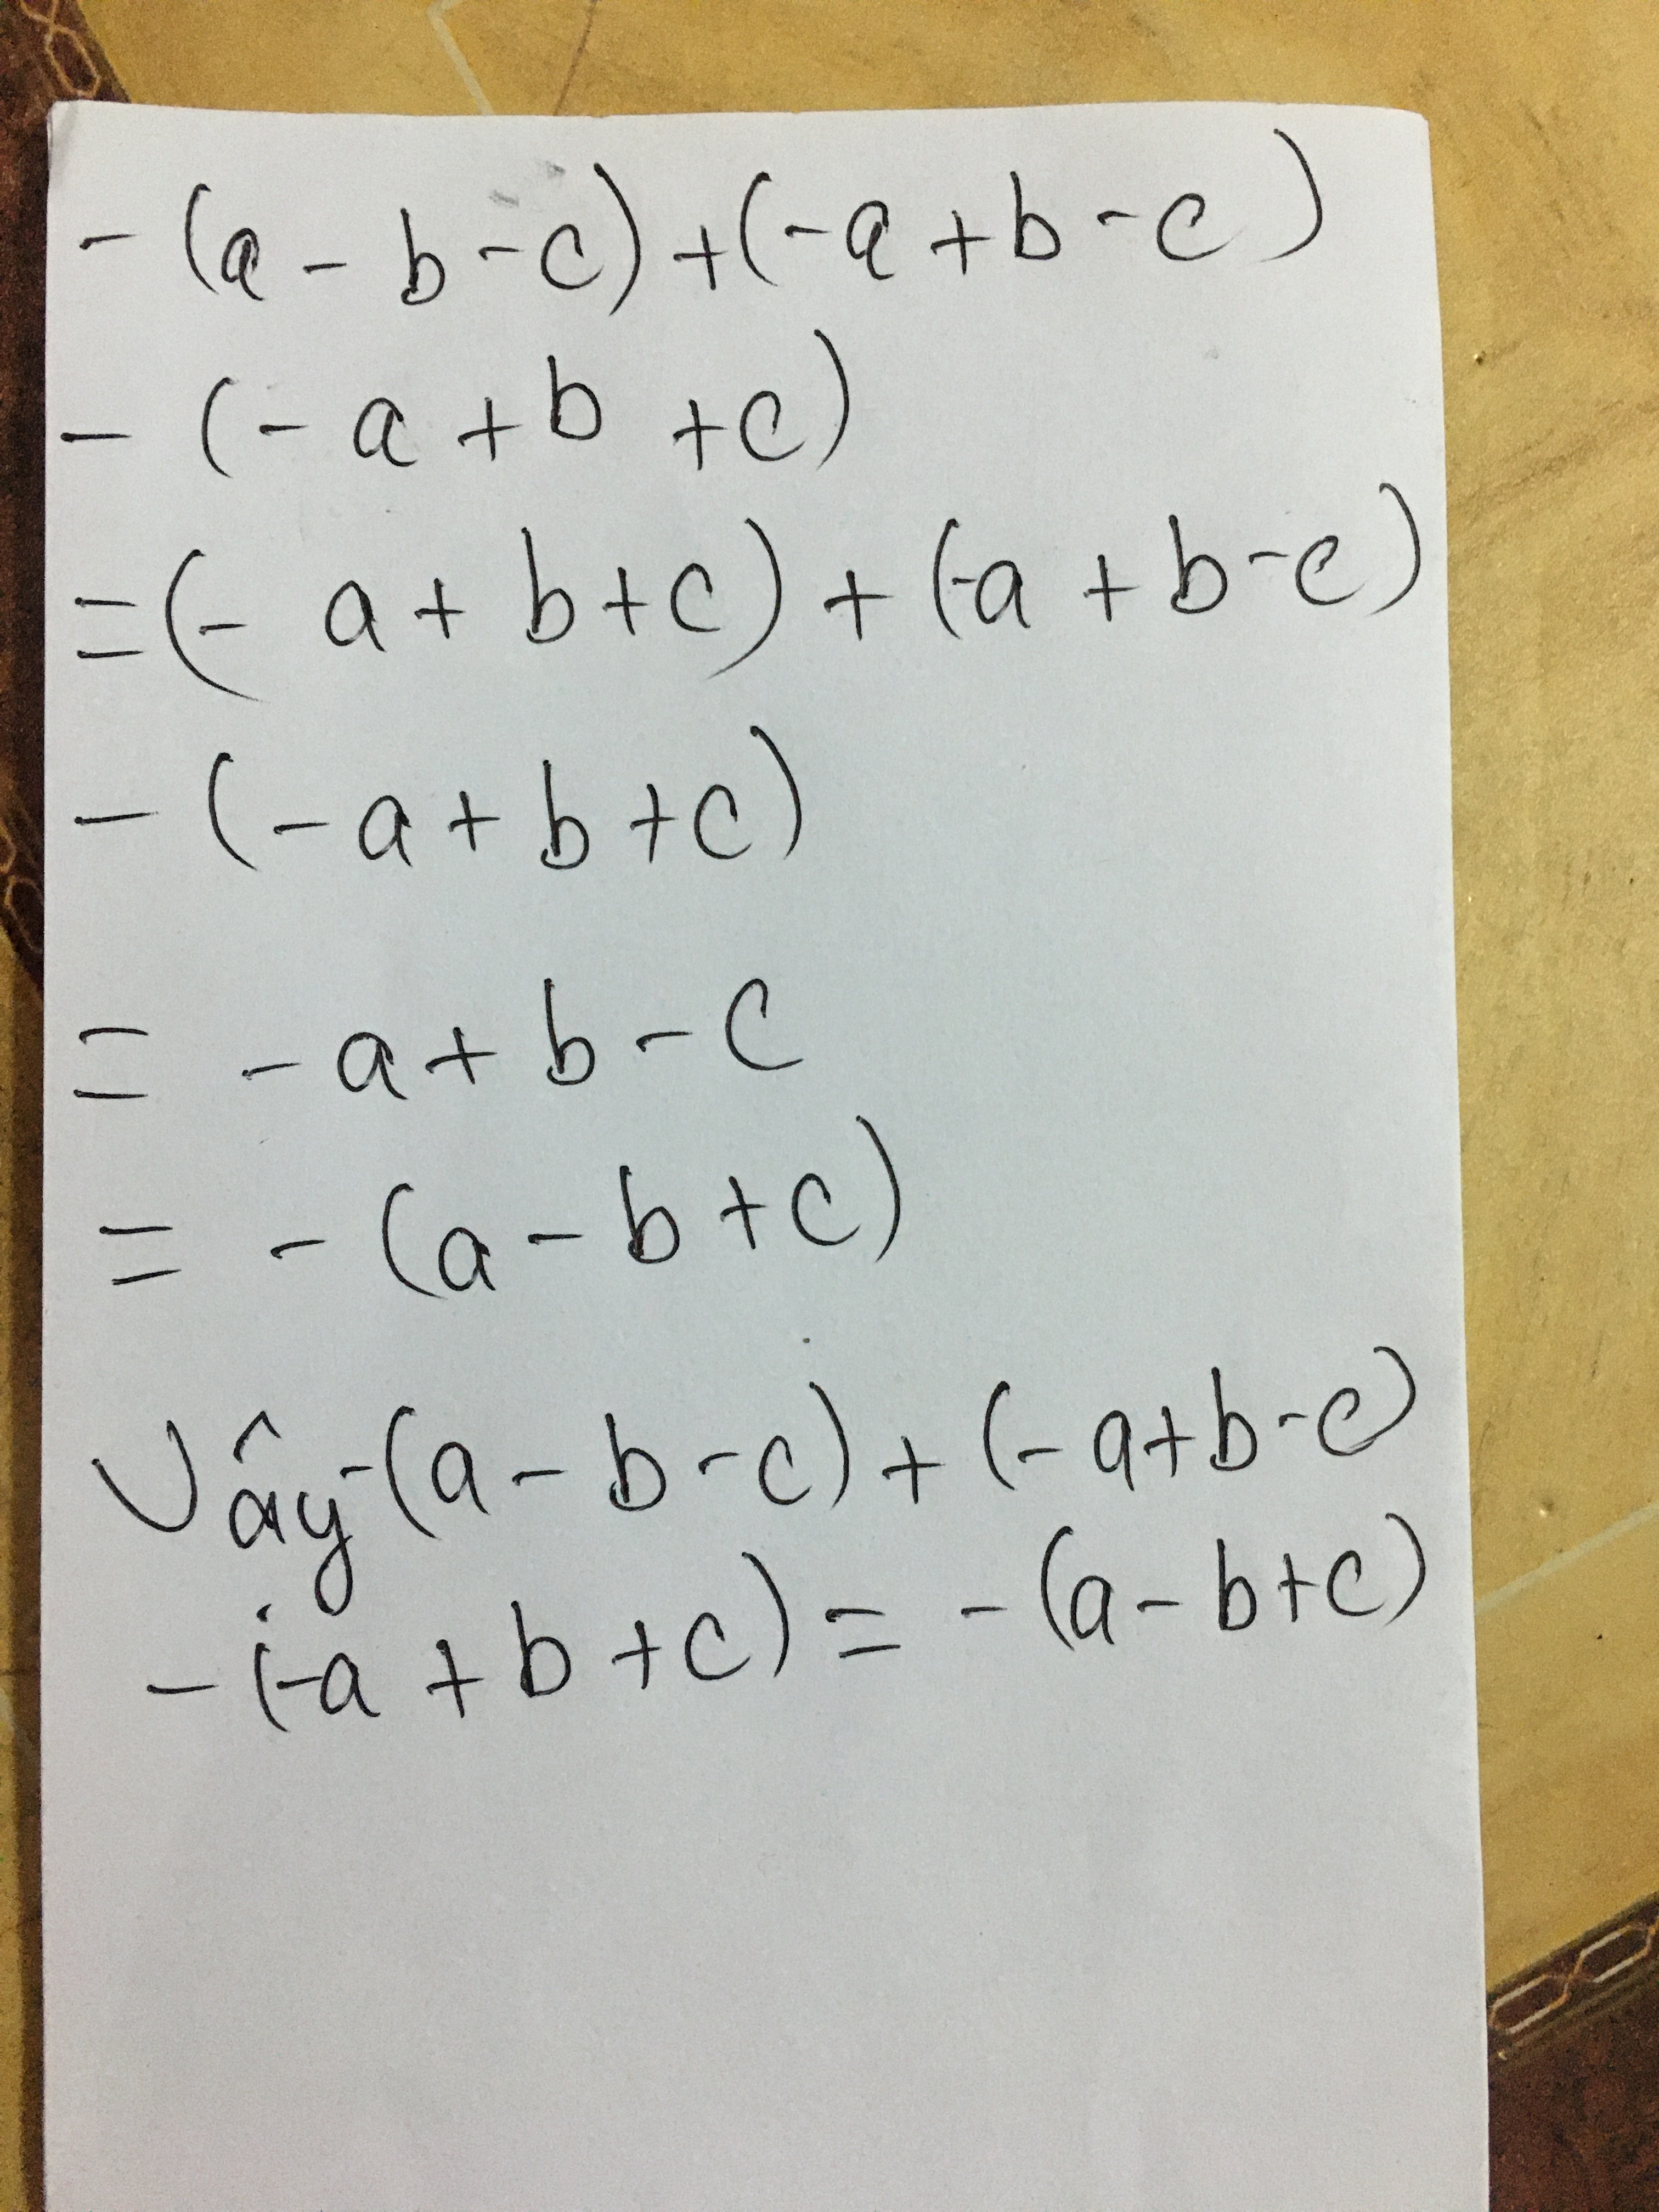 - (a - b - c) + (- a + b - c)
- (- a + b + c)
= (- a + b + c) + (-a + b - c)
- (- a + b + c)
= - a + b - c
= - (a - b + c)
Vậy -(a - b - c) + (- a + b - c)
- (-a + b + c) = - (a - b + c)